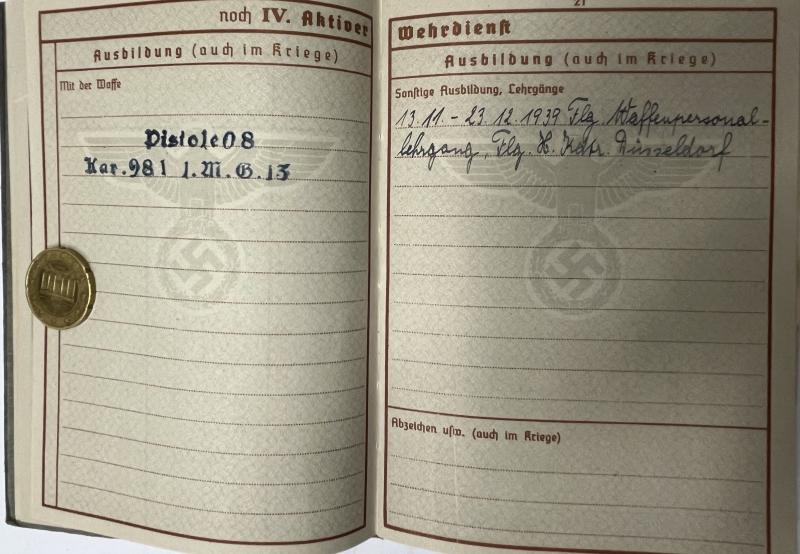 noch IV. Aktiver
Ausbildung (auch im Kriege)
Mit der Waffe
Pistole 08
Kar. 98 l l. M. G. 13
21
Wehrdienst
Ausbildung (auch im Kriege)
Sonstige Ausbildung, Lehrgänge
13.11 - 23.12.1939 Flg. Waffenpersonal-
lehrgang, Flg. H. Kdtr. Düsseldorf
Abzeichen usw. (auch im Kriege)